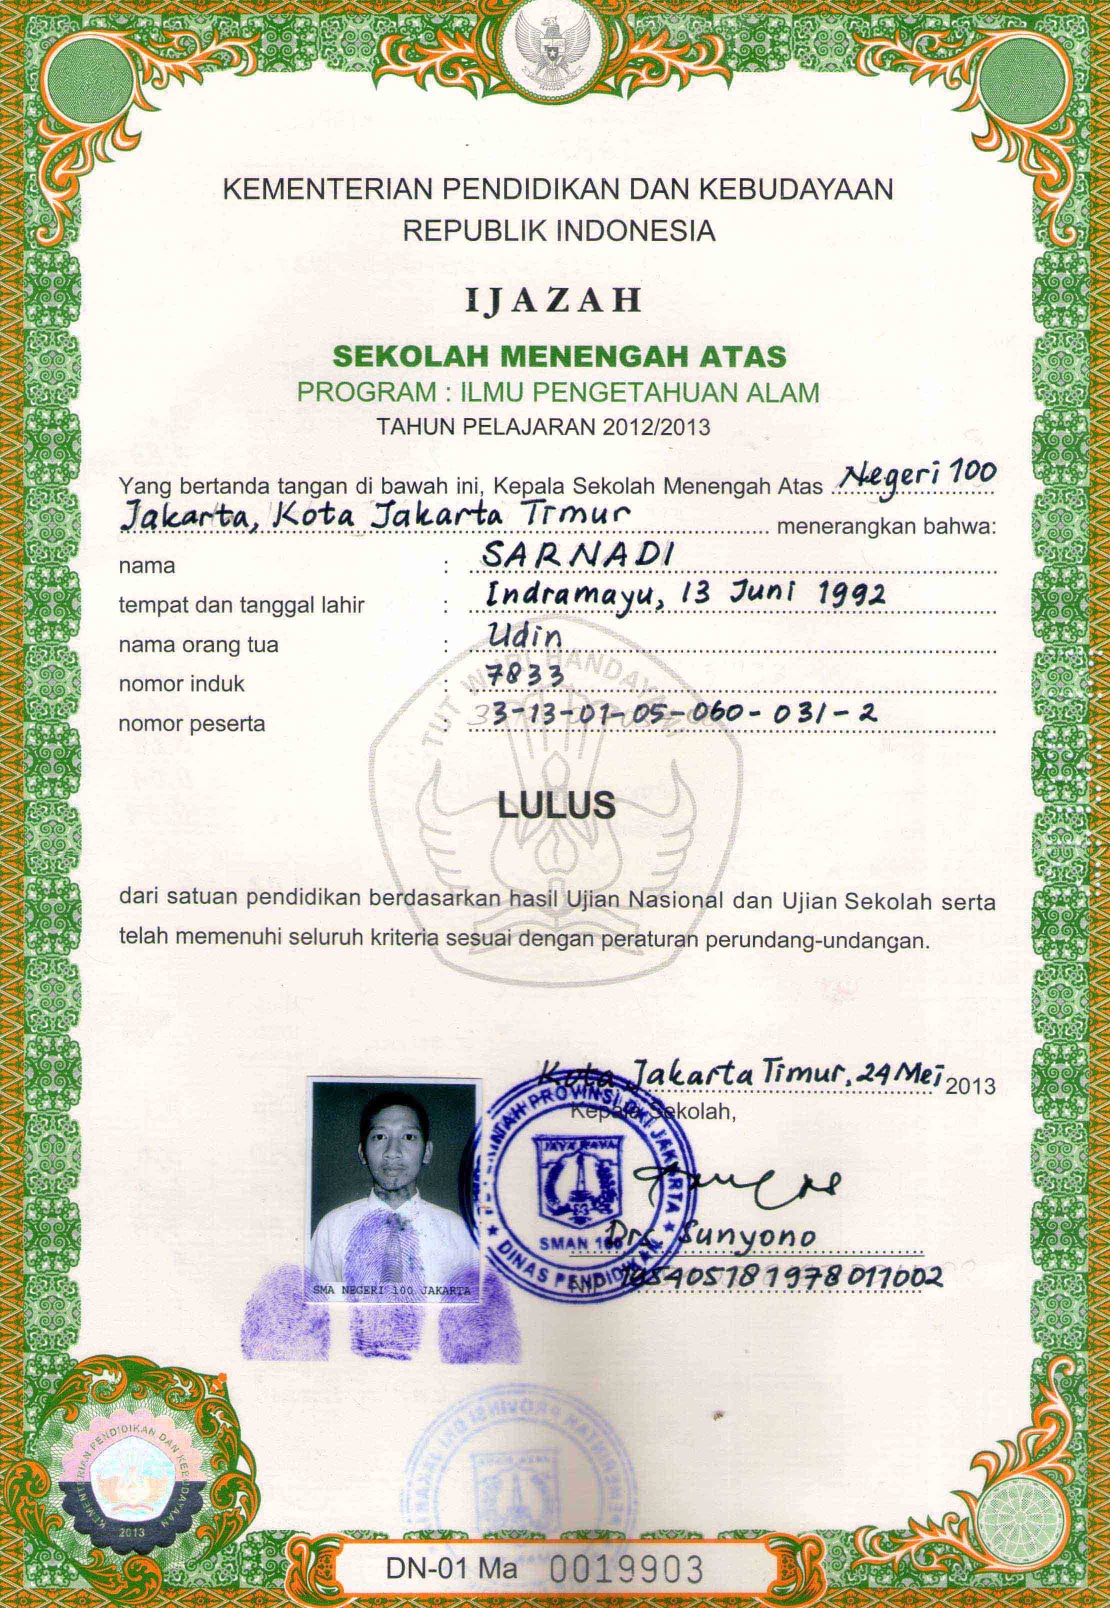 KEMENTERIAN PENDIDIKAN DAN KEBUDAYAAN
REPUBLIK INDONESIA
IJAZAH
SEKOLAH MENENGAH ATAS
PROGRAM : ILMU PENGETAHUAN ALAM
TAHUN PELAJARAN 2012/2013
Yang bertanda tangan di bawah ini, Kepala Sekolah Menengah Atas Negeri 100
Jakarta, Kota Jakarta Timur menerangkan bahwa:
nama : SARNADI
tempat dan tanggal lahir : Indramayu, 13 Juni 1992
nama orang tua : Udin
nomor induk : 7833
nomor peserta : 3-13-01-05-060-031-2
TUT WURI HANDAYANI
LULUS
dari satuan pendidikan berdasarkan hasil Ujian Nasional dan Ujian Sekolah serta
telah memenuhi seluruh kriteria sesuai dengan peraturan perundang-undangan.
Kota Jakarta Timur, 24 Mei 2013
Kepala Sekolah,
PEMERINTAH PROVINSI DKI JAKARTA
JAYA RAYA
SMAN 100
DINAS PENDIDIKAN
Drs. Sunyono
NIP 195405181978011002
SMA NEGERI 100 JAKARTA
KEMENTERIAN PENDIDIKAN DAN KEBUDAYAAN
2013
DN-01 Ma 0019903